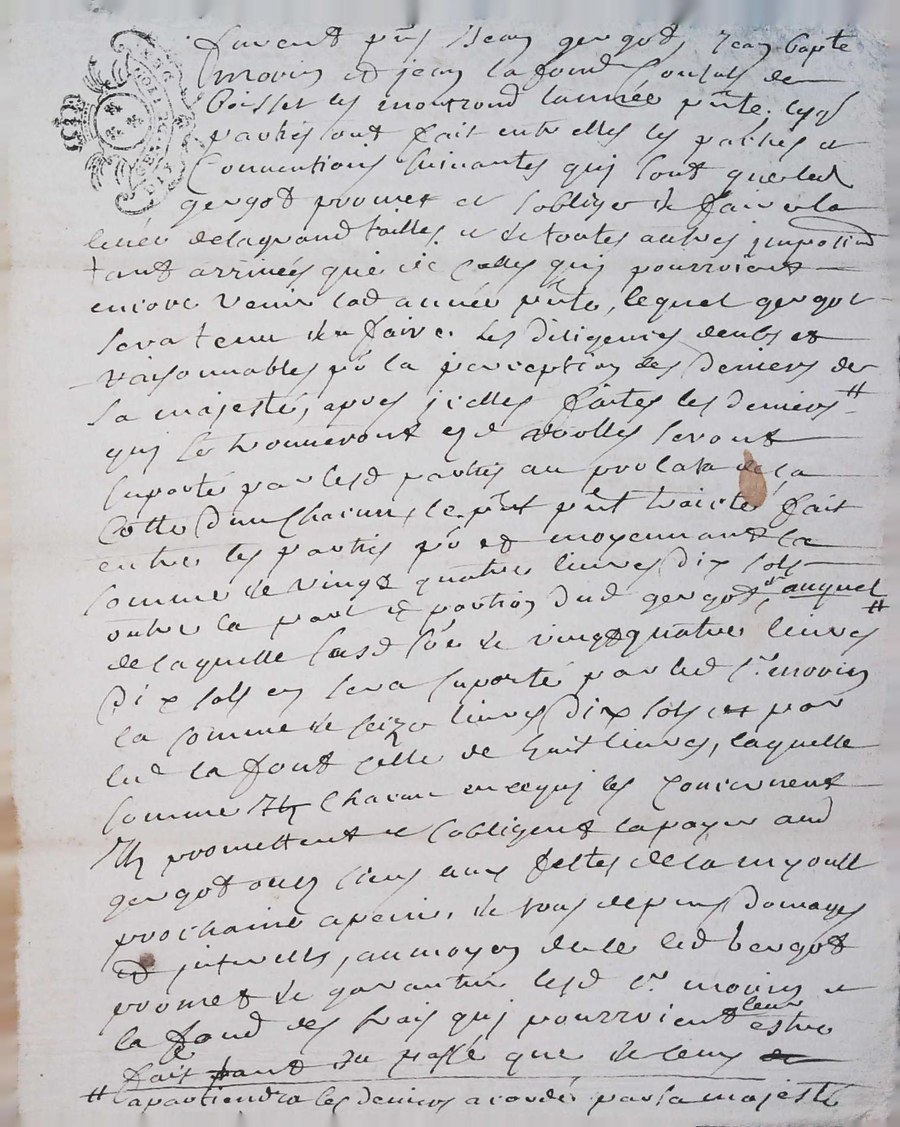 furent pñs Jean gergot, Jean bapte
morin et jean lafond Consuls de
boisset les montrond lannée pñte, lesqls
parties ont fait entre elles les pactes et
Conventions suivantes qui sont que led
gergot promet et soblige de faire la
levée de la grand tailles et de toutes autres imposions
tant arrivées que de celles qui pourroient
encore venir lad année pñte, lequel gergot
sera tenu de faire les diligences deubs et
raisonnables pr la perception des deniers de
sa majesté, apres icelles faites les deniers #
qui se trouveront es d roolles seront
suporté par lesd parties au prolata de la
Cotte dun Chacun, le pñt traicté fait
entre les parties pr et moyennant la
somme de vingt quatre livres dix sols
outre la part et portion dud gergot, auquel #
de laquelle susd soe de vingt quatre livres
dix sols en sera suporté par led sr. morin
la somme de seize livres dix sols et par
led la font celle de huit livres, laquelle
somme Chacun en ce qui les concernent
Ils promettent et sobligent la payer aud
gergot ou es siens aux festes de la my oult
prochaine a peine de tous depens domages
et interests, au moyen de ce led gergot
promet de garantir lesd sr. morin et
la fond des frais qui pourroient leur estre
fait tant du passé que de leur
# apartiendra les deniers acordés par sa majesté